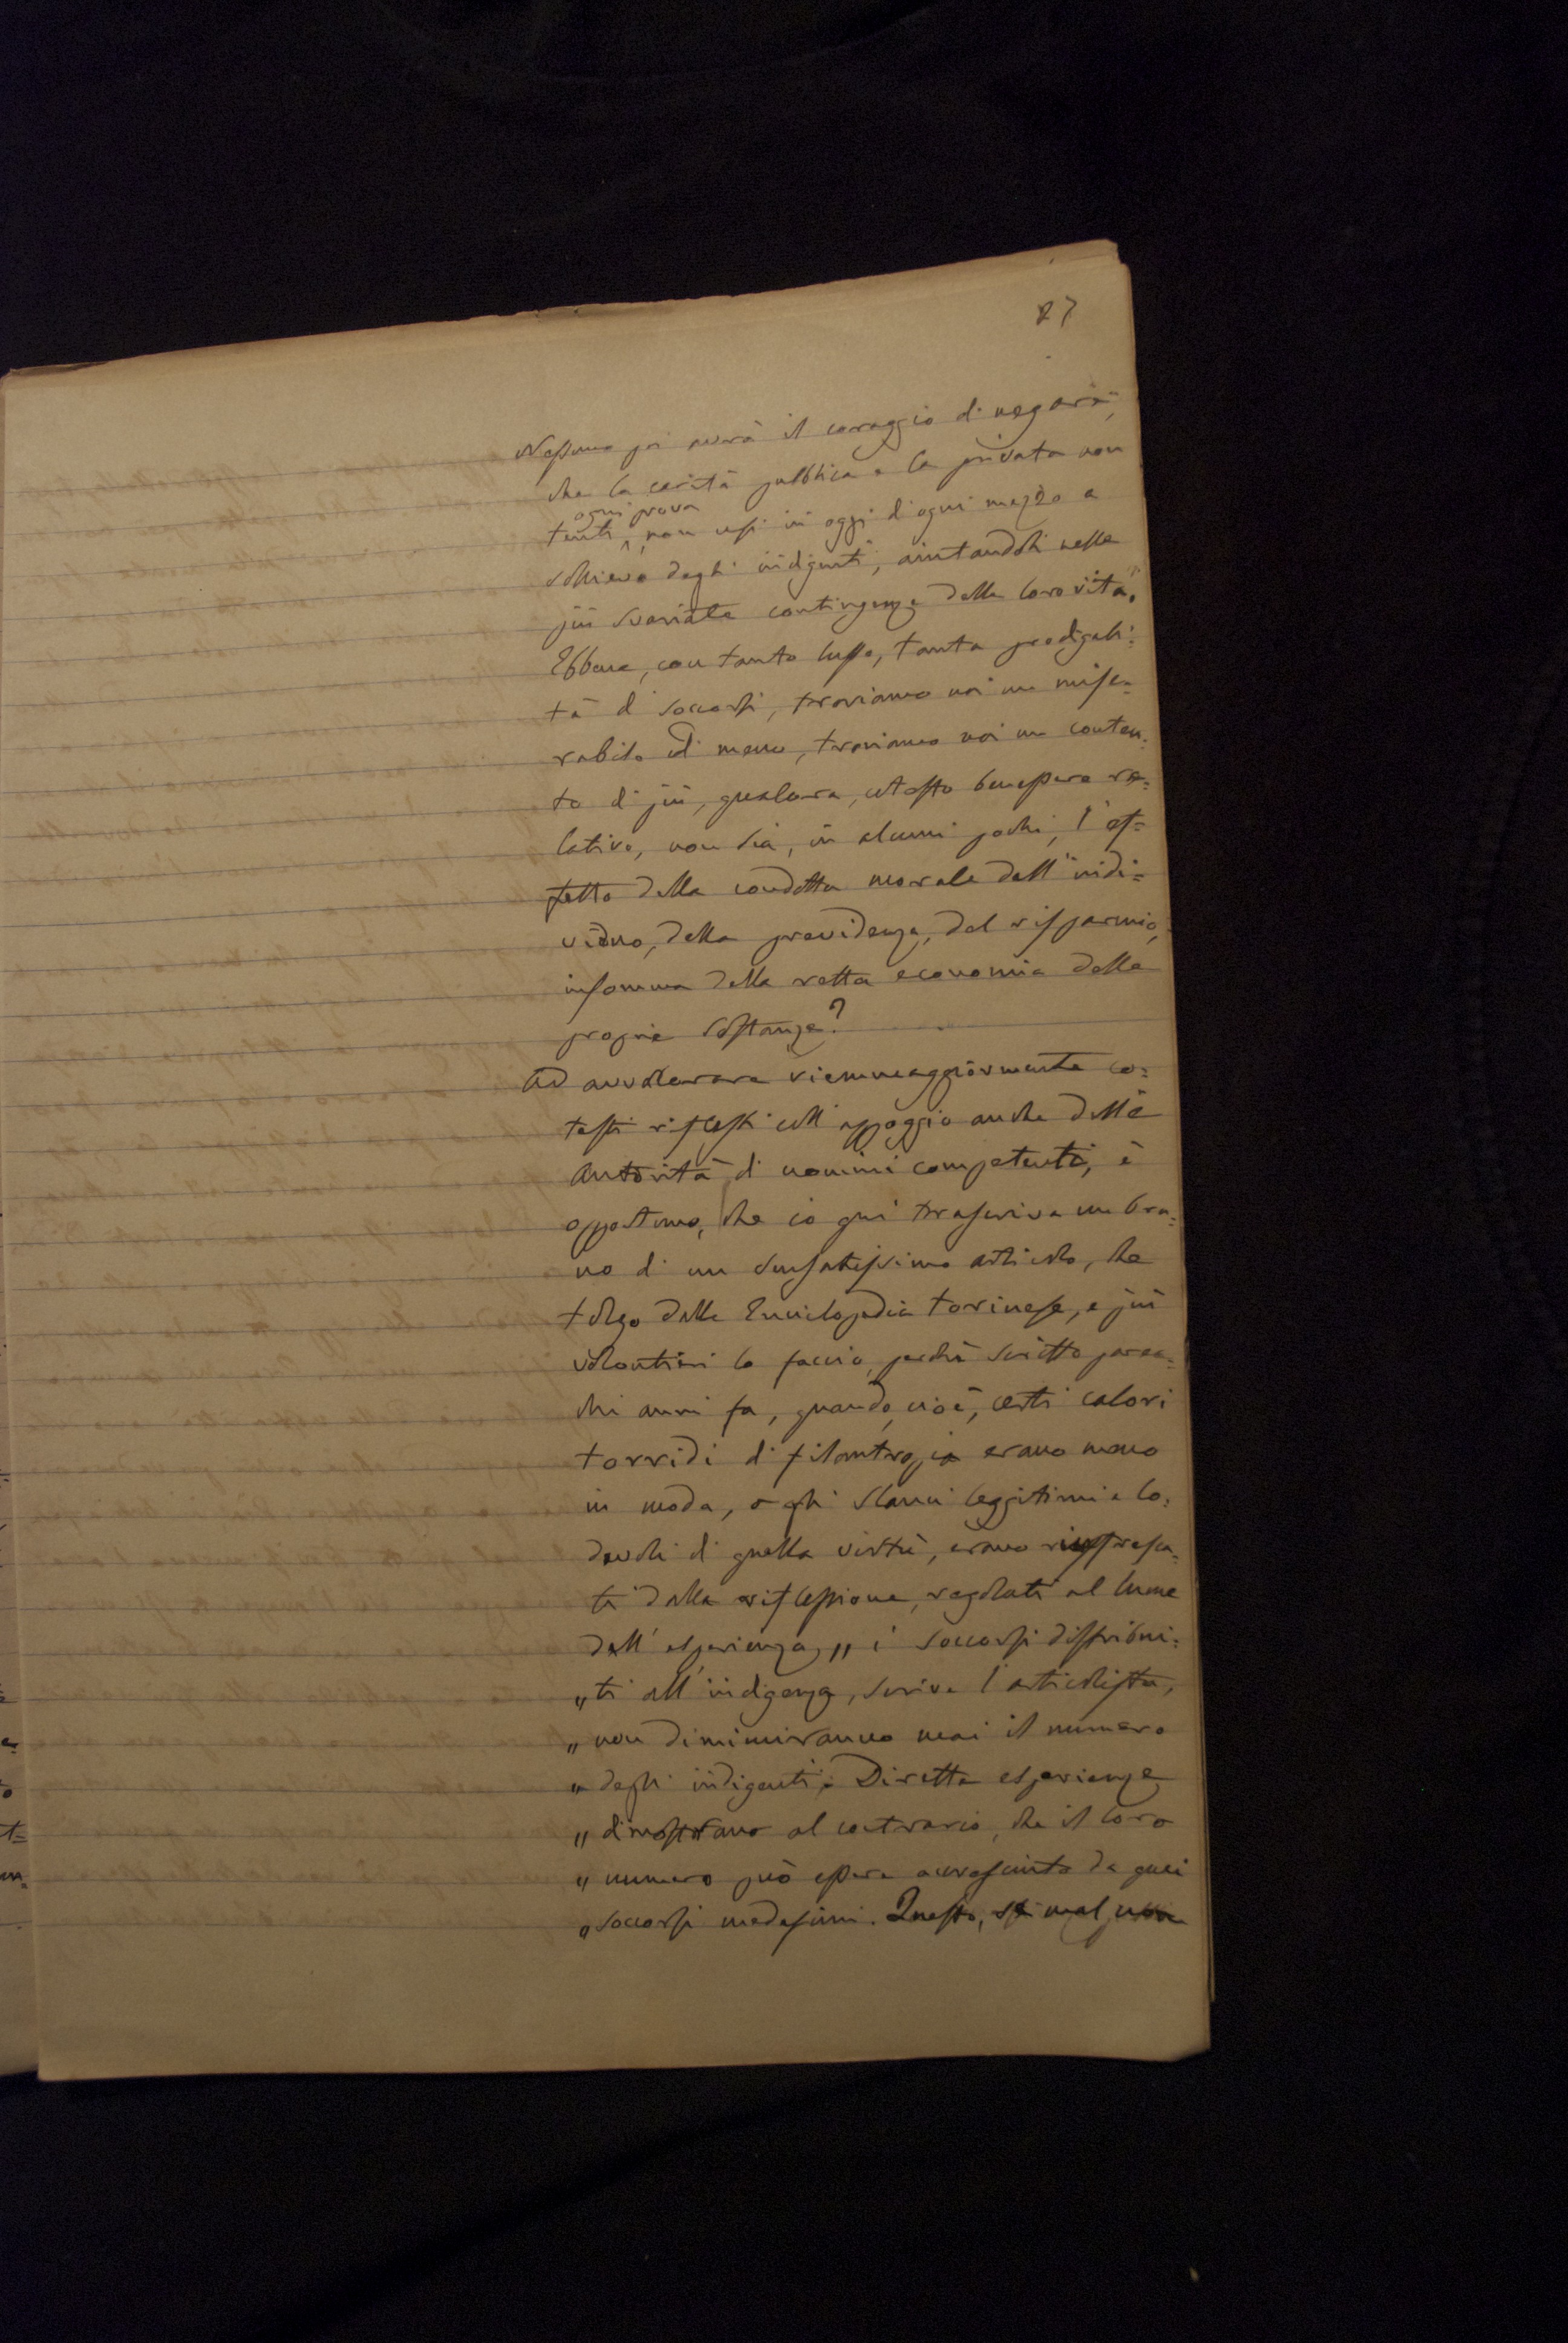 27
Nessuno poi avrà il coraggio di negare,
che la carità pubblica e la privata non
ogni prova
tenti, non usi in oggi d'ogni mezzo a
sollievo degli indigenti, aiutandoli nelle
più svariate contingenze della loro vita.
Ebbene, con tanto lusso, tanta prodigali:
tà di soccorsi, troviamo noi un mise:
rabile di meno, troviamo noi un conten:
to di più, qualora, cotesto benessere re:
lativo, non sia, in alcuni pochi, l'ef=
fetto della condotta morale dell'indi=
viduo, della previdenza, del risparmio,
insomma della retta economia delle
proprie sostanze?
Ad avvalorare viemmeaggiormente co:
testi riflessi coll'appoggio anche delle
autorità di uomini competenti, è
opportuno, che io qui trascriva un bra:
no di un sensatissimo articolo, che
tolgo dalla Enciclopedia torinese, e più
volontieri lo faccio, perchè scritto parec:
chi anni fa, quando, cioè, certi calori
torridi di filantropia erano meno
in moda, o gli slanci leggitimi e lo:
devoli di quella virtù, erano rinfresca:
ti dalla riflessione, regolati al lume
dell'esperienza, „ i soccorsi distribui:
„ ti all'indigenza, scrive l'articolista,
„ non diminuiranno mai il numero
„ degli indigenti. Dirette esperienze
„ dimostrano al contrario, che il loro
„ numero può essere accresciuto da quei
„ soccorsi medesimi. Questo, se mal